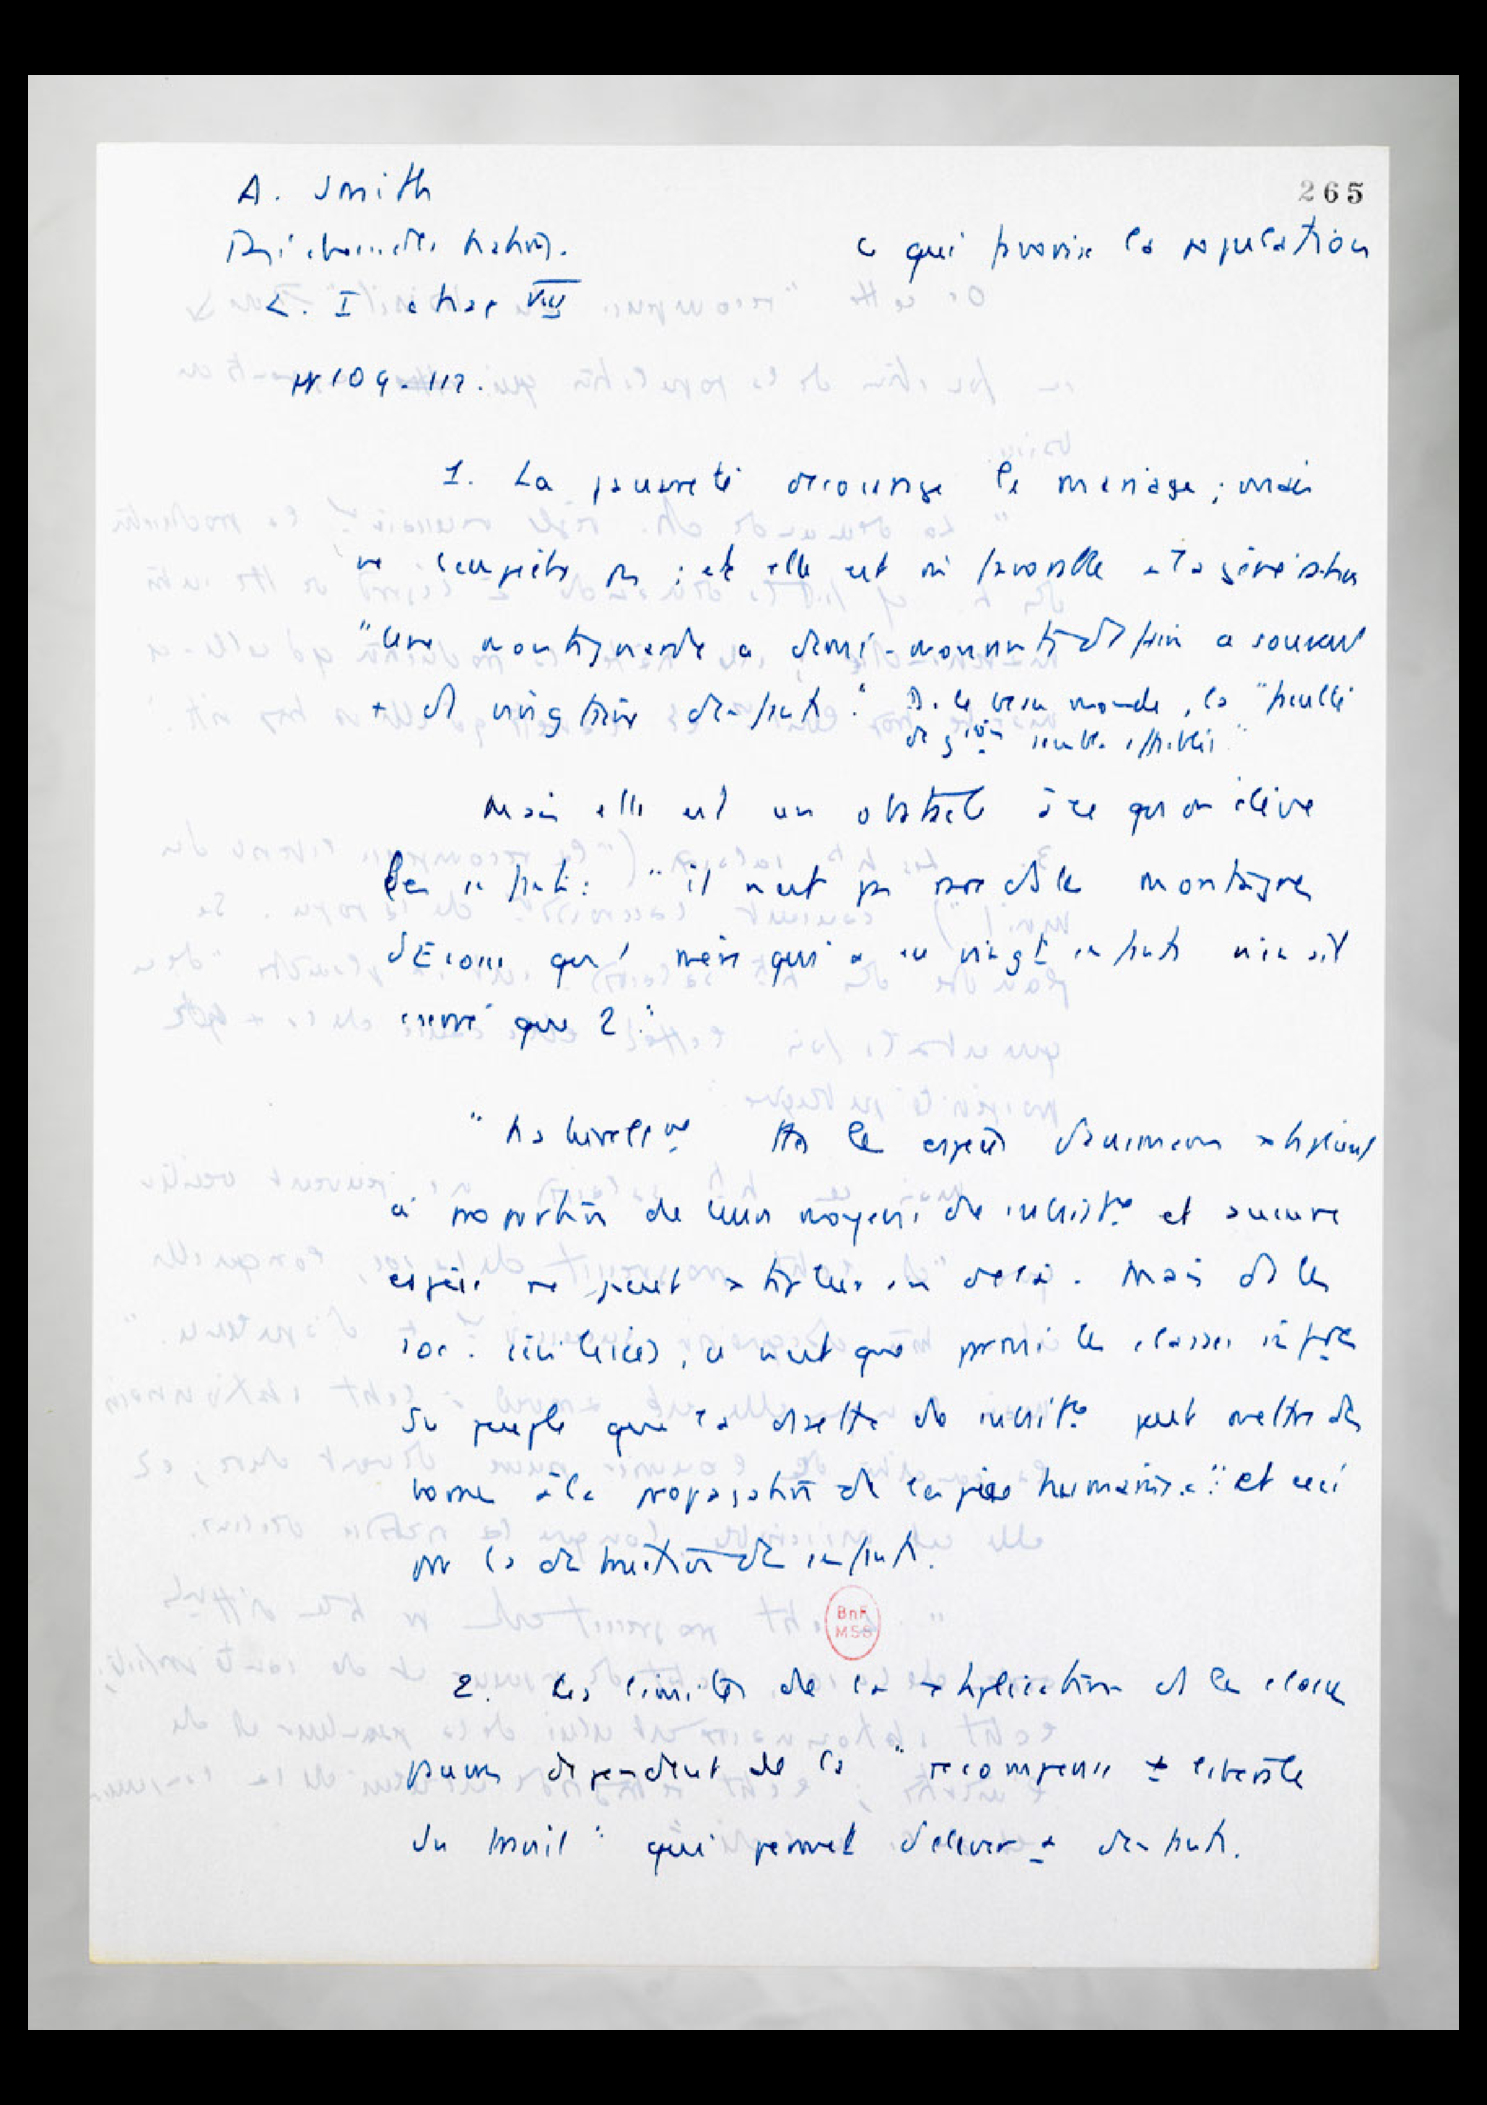 A. Smith
265
Richesse des nations.
ce qui favorise la population
L. I chap VIII
pp 109-112.
1. La pauvreté décourage le mariage ; mais
ne l'empêche pas ; et elle est même favorable à la génération
"Une montagnarde à demi-mourante de faim a souvent
+ de vingt enfants." Ds le beau monde, la "faculté
de gion semble affaiblie"
Mais elle est un obstacle à ce qu'on élève
les enfants : "il n'est pas rare ds les montagnes
d'Ecosse qu' mère qui a eu vingt enfants n'en ait
conservé que 2."
"Naturellemt ttes les espèces d'animaux multiplient
à proportion de leurs moyens de subsistce et aucune
espèce ne peut multiplier au delà. Mais ds les
soc. civilisées, ce n'est que parmi les classes infres
du peuple que la disette de subsistce peut mettre des
bornes à la propagation de l'espèce humaine." et ceci
par la destruction des enfants.
BnF
MSS
2. Les limites de la multiplication ds les classes
pauvres dépendent de la "récompense ± libérale
du travail" qui permet d'élever + d'enfants.